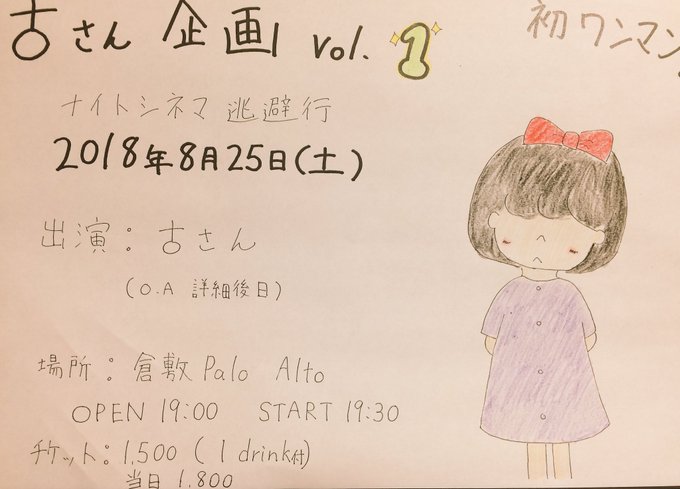 古さん 企画 vol. 1
初ワンマン。
ナイトシネマ逃避行
2018年8月25日(土)
出演：古さん
(O.A 詳細後日)
場所：倉敷 Palo Alto
OPEN 19:00 START 19:30
チケット：1,500 (1 drink付)
当日 1,800